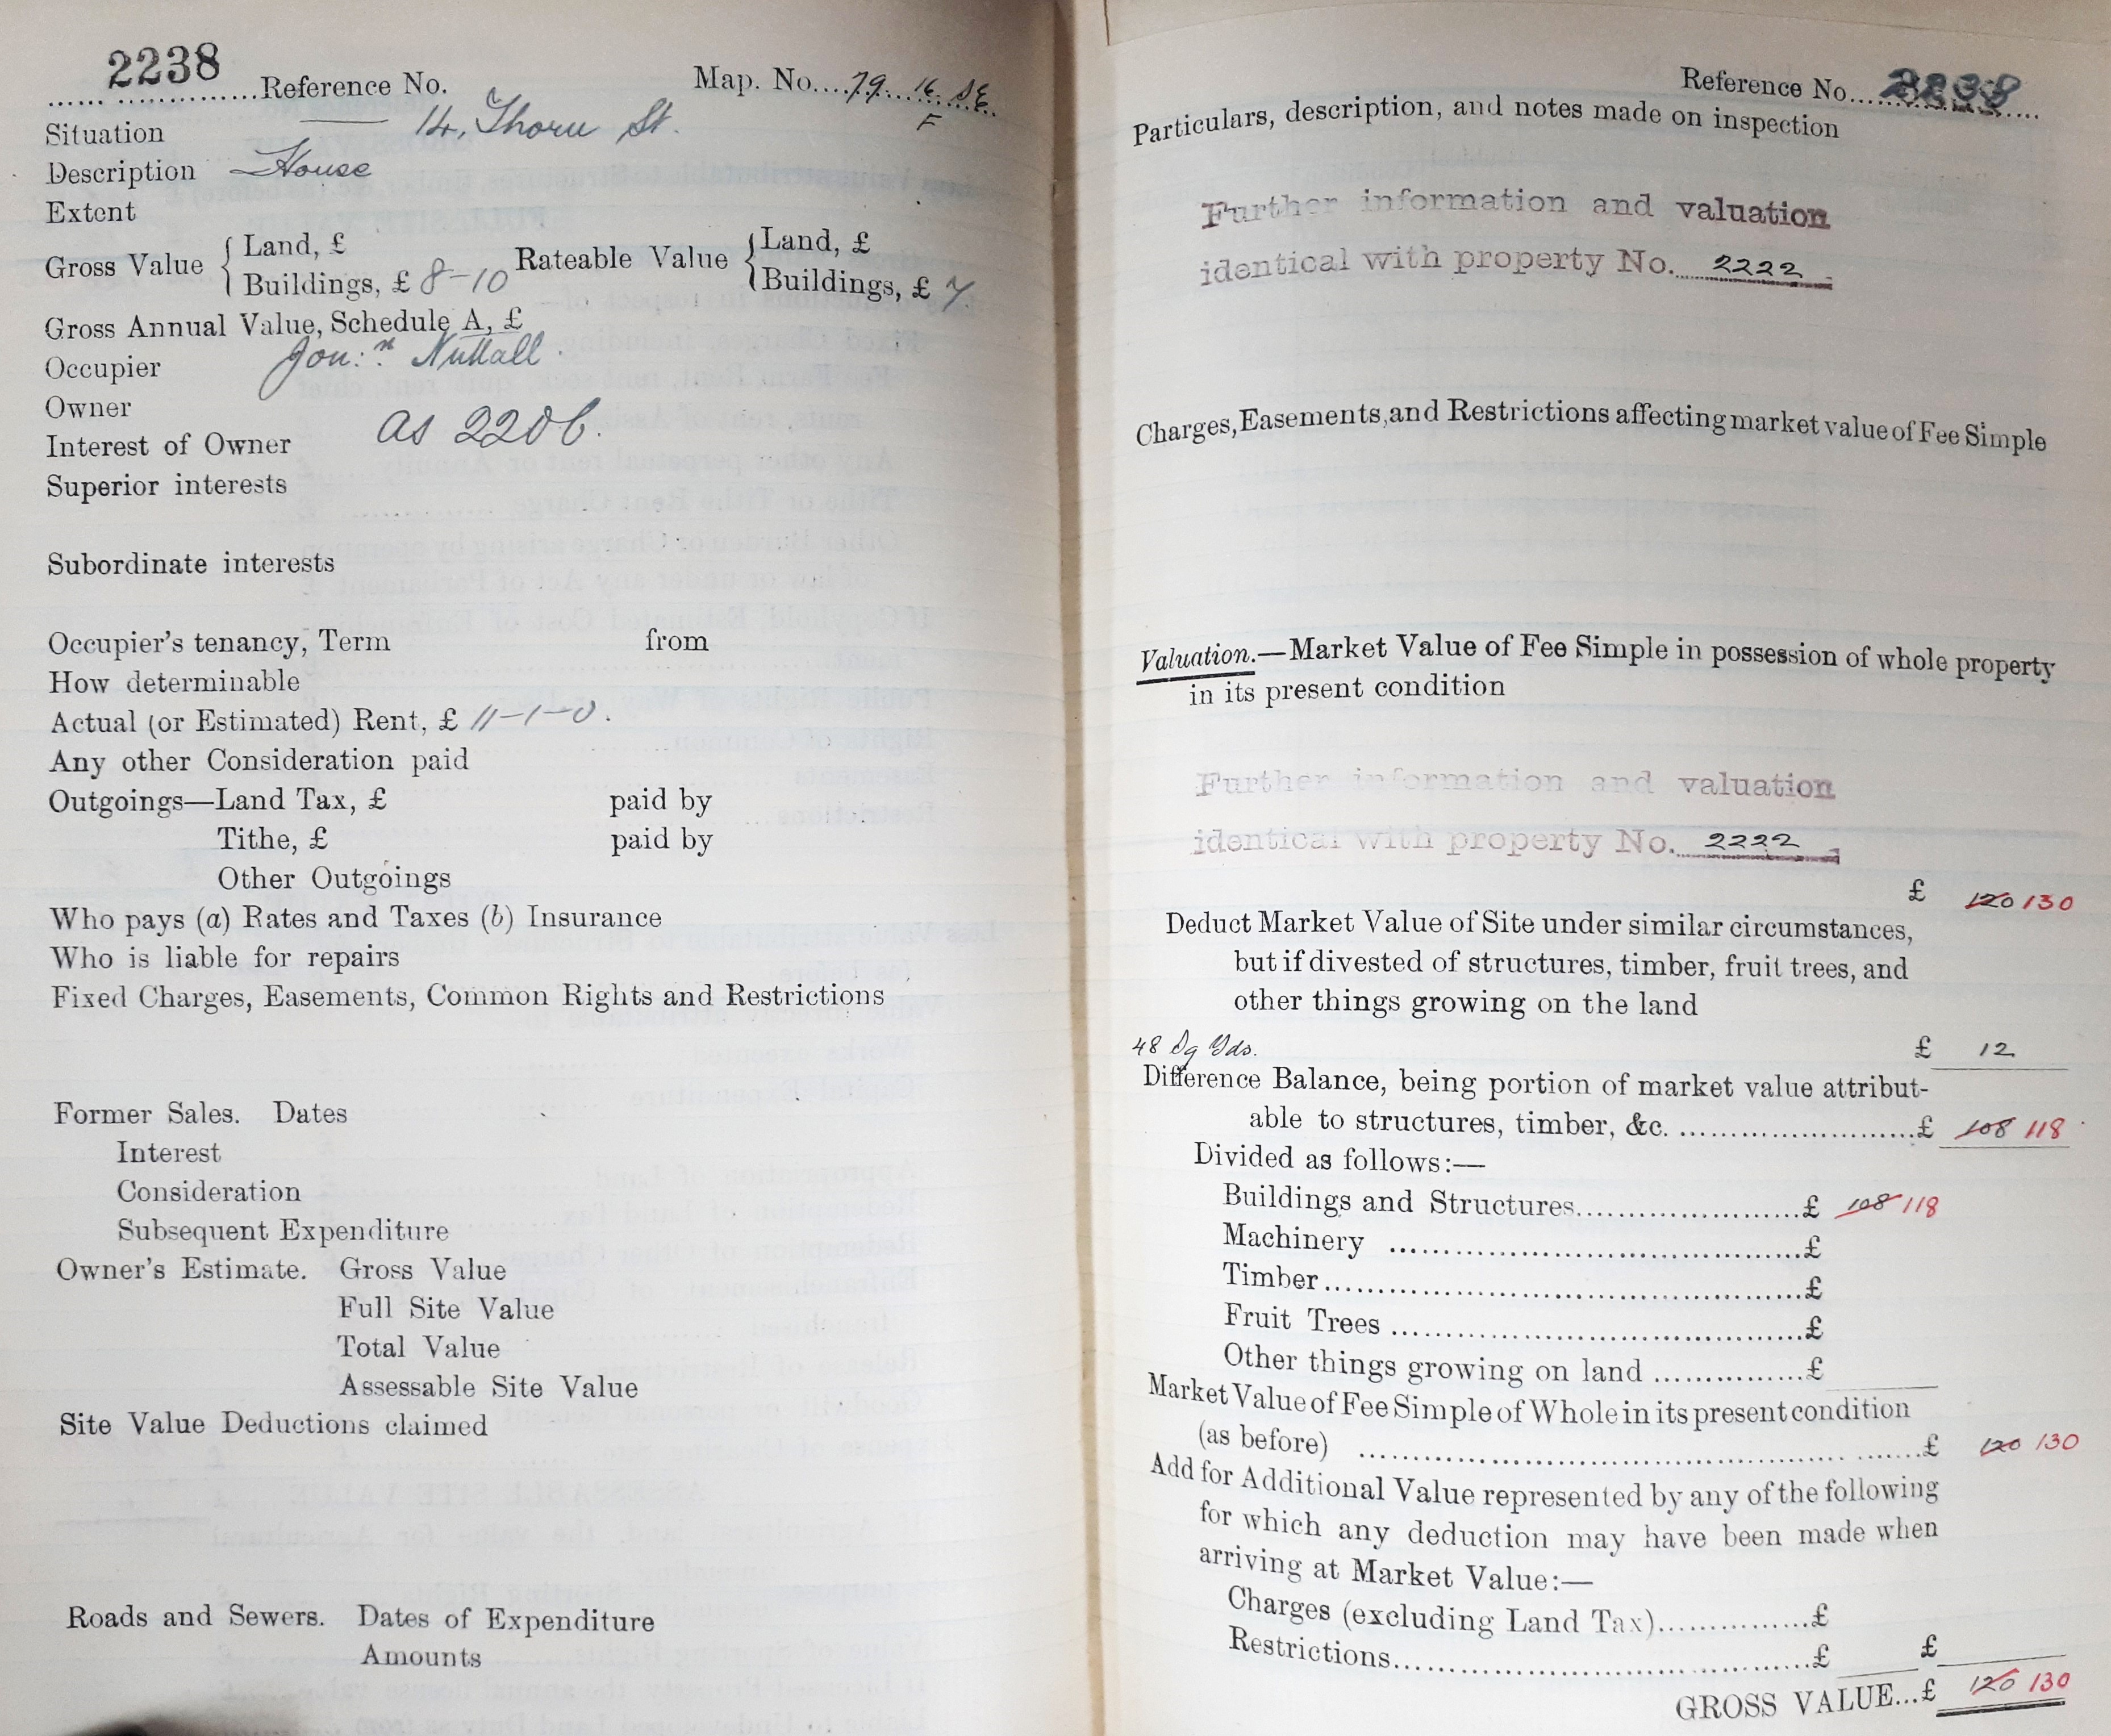 2238
Reference No. Map. No. 79 16 SE
F
Situation 14, Thorn St.
Description House
Extent
Gross Value { Land, £ Rateable Value { Land, £
Buildings, £ 8-10 Buildings, £ 7.
Gross Annual Value, Schedule A, £
Occupier Jon:n Nuttall.
Owner
as 2206.
Interest of Owner
Superior interests
Subordinate interests
Occupier's tenancy, Term from
How determinable
Actual (or Estimated) Rent, £ 11-1-0.
Any other Consideration paid
Outgoings—Land Tax, £ paid by
Tithe, £ paid by
Other Outgoings
Who pays (a) Rates and Taxes (b) Insurance
Who is liable for repairs
Fixed Charges, Easements, Common Rights and Restrictions
Former Sales. Dates
Interest
Consideration
Subsequent Expenditure
Owner's Estimate. Gross Value
Full Site Value
Total Value
Assessable Site Value
Site Value Deductions claimed
Roads and Sewers. Dates of Expenditure
Amounts
Reference No. 2238
Particulars, description, and notes made on inspection
Further information and valuation
identical with property No. 2222
Charges, Easements, and Restrictions affecting market value of Fee Simple
Valuation.—Market Value of Fee Simple in possession of whole property
in its present condition
Further information and valuation
identical with property No. 2222
£ 120 130
Deduct Market Value of Site under similar circumstances,
but if divested of structures, timber, fruit trees, and
other things growing on the land
48 Sq Yds. £ 12
Difference Balance, being portion of market value attribut-
able to structures, timber, &c. £ 108 118
Divided as follows:—
Buildings and Structures £ 108 118
Machinery £
Timber £
Fruit Trees £
Other things growing on land £
Market Value of Fee Simple of Whole in its present condition
(as before) £ 120 130
Add for Additional Value represented by any of the following
for which any deduction may have been made when
arriving at Market Value:—
Charges (excluding Land Tax) £
Restrictions £ £
GROSS VALUE...£ 120 130